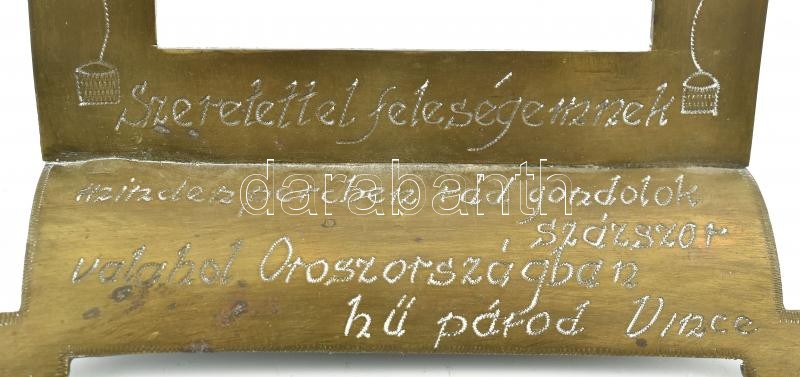 Szeretettel feleségemnek
minden percben rád gondolok
százszor
valahol Oroszországban
hű párod Vince
darabanth